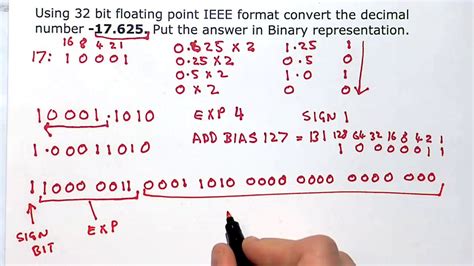 Using 32 bit floating point IEEE format convert the decimal
number -17.625. Put the answer in Binary representation.
16 8 4 2 1
17: 1 0 0 0 1
0.625 x 2 1.25 1
0.25 x 2 0.5 0
0.5 x 2 1.0 1
0 x 2 0 0
10001.1010 EXP 4 SIGN 1
ADD BIAS 127 = 131 128 64 32 16 8 4 2 1
1 0 0 0 0 0 1 1
1.00011010
1 1000 0011 0001 1010 0000 0000 0000 0000 000
SIGN
BIT
EXP